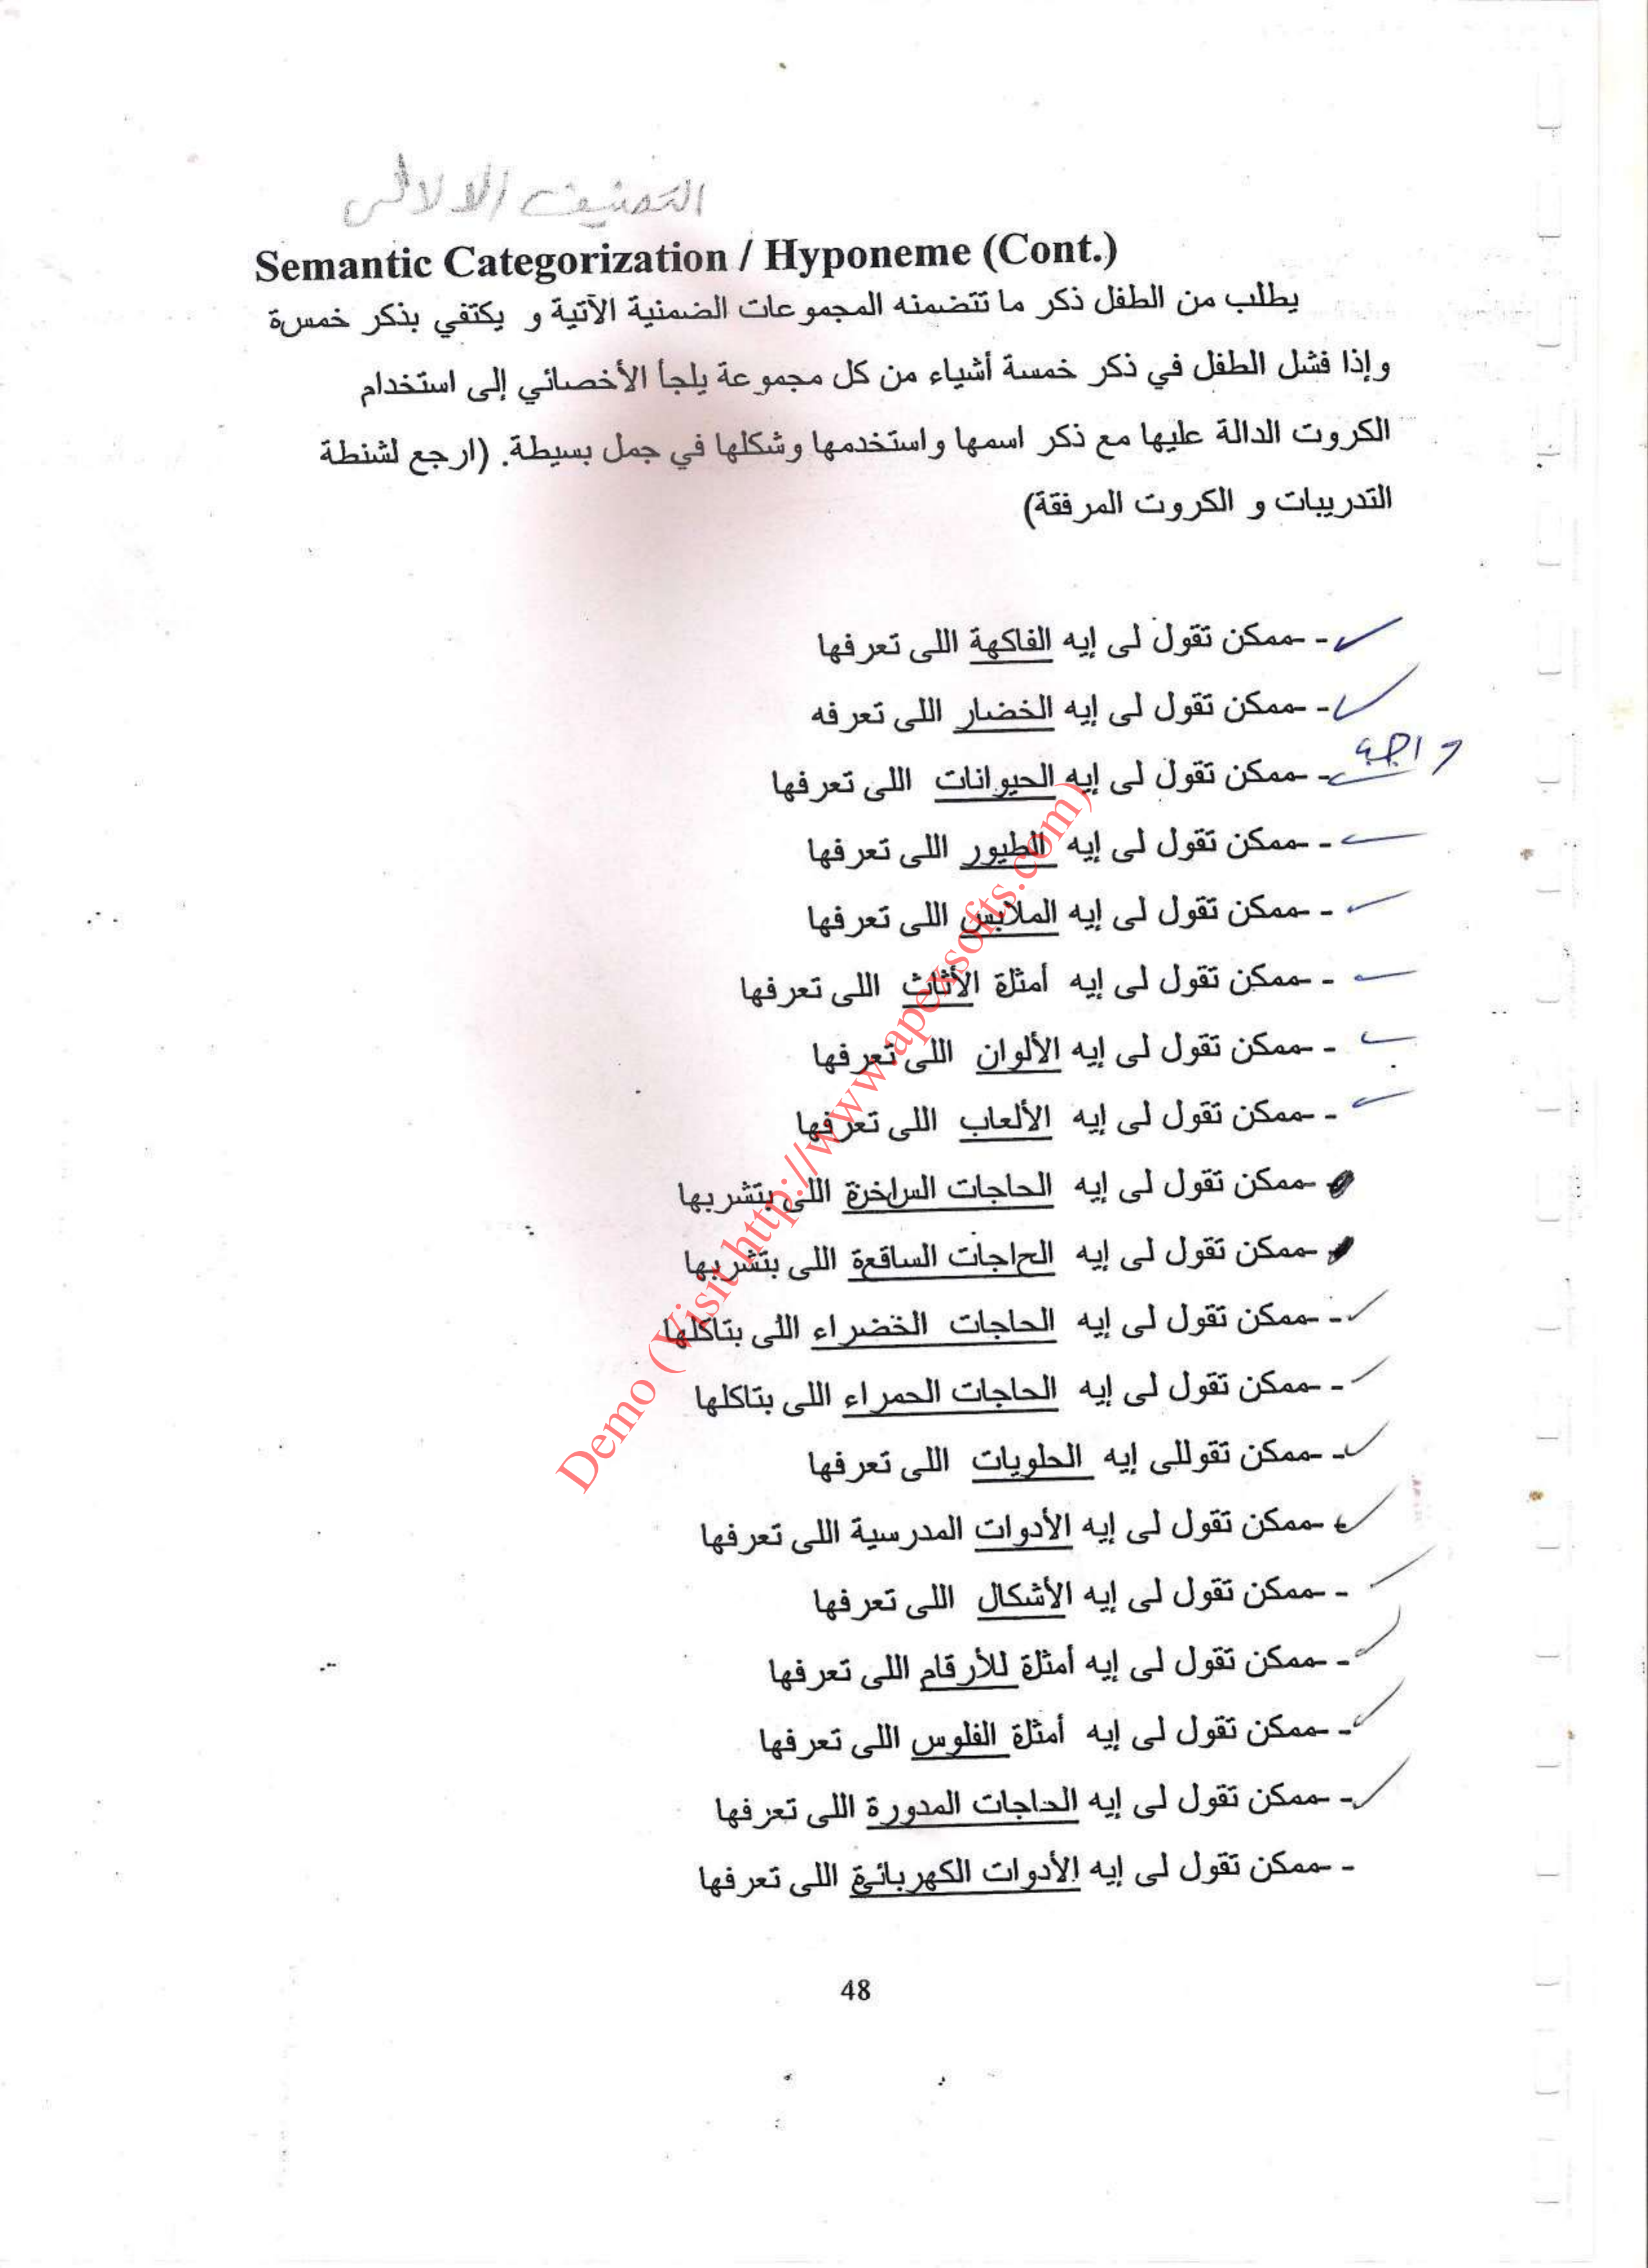 التصنيف الدلالى
Semantic Categorization / Hyponeme (Cont.)
يطلب من الطفل ذكر ما تتضمنه المجموعات الضمنية الآتية و يكتفي بذكر خمسة
وإذا فشل الطفل في ذكر خمسة أشياء من كل مجموعة يلجأ الأخصائي إلى استخدام
الكروت الدالة عليها مع ذكر اسمها واستخدمها وشكلها في جمل بسيطة. (ارجع لشنطة
التدريبات و الكروت المرفقة)
- -ممكن تقول لى إيه الفاكهة اللى تعرفها
- -ممكن تقول لى إيه الخضار اللى تعرفه
- -ممكن تقول لى إيه الحيوانات اللى تعرفها
- -ممكن تقول لى إيه الطيور اللى تعرفها
- -ممكن تقول لى إيه الملابس اللى تعرفها
- -ممكن تقول لى إيه أمثلة الأثاث اللى تعرفها
- -ممكن تقول لى إيه الألوان اللى تعرفها
- -ممكن تقول لى إيه الألعاب اللى تعرفها
-ممكن تقول لى إيه الحاجات الساخنة اللى بتشربها
-ممكن تقول لى إيه الحاجات الساقعة اللى بتشربها
- -ممكن تقول لى إيه الحاجات الخضراء اللى بتاكلها
- -ممكن تقول لى إيه الحاجات الحمراء اللى بتاكلها
- -ممكن تقوللى إيه الحلويات اللى تعرفها
-ممكن تقول لى إيه الأدوات المدرسية اللى تعرفها
- -ممكن تقول لى إيه الأشكال اللى تعرفها
- -ممكن تقول لى إيه أمثلة للأرقام اللى تعرفها
- -ممكن تقول لى إيه أمثلة الفلوس اللى تعرفها
- -ممكن تقول لى إيه الحاجات المدورة اللى تعرفها
- -ممكن تقول لى إيه الأدوات الكهربائية اللى تعرفها
48
Demo (Visit http://www.apexsofts.com)